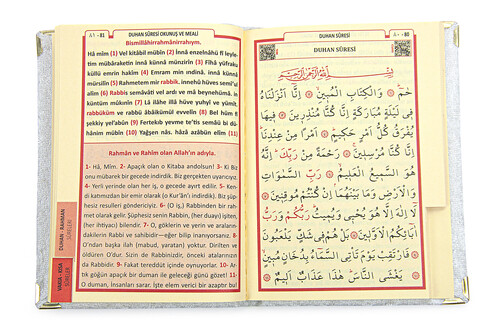 ٨١ - 81 DUHAN SÛRESİ OKUNUŞ VE MEALİ
Bismillâhirrahmânirrahıym.
Hâ mîm (1) Vel kitâbil mübîn (2) İnnâ enzelnâhü fî ley-
letim mübâraketin innâ künnâ münzirîn (3) Fîhâ yüfraku
küllü emrin hakîm (4) Emram min ındinâ, innâ künnâ
mürsilîn (5) Rahmetem mir rabbik, innehû hüves semîul
alîm (6) Rabbis semâvâti vel ardı ve mâ beynehümâ, in
küntüm mûkınîn (7) Lâ ilâhe illâ hüve yuhyî ve yümît,
rabbüküm ve rabbü âbâikümül evvelîn (8) Bel hüm fî
şekkiy yel'abûn (9) Fertekıb yevme te'tis semâü bi dü-
hânim mübîn (10) Yağşen nâs. hâzâ azâbün elîm (11)
Rahmân ve Rahîm olan Allah'ın adıyla.
1- Hâ, Mîm. 2- Apaçık olan o Kitaba andolsun! 3- Ki Biz
onu mübarek bir gecede indirdik. Biz gerçekten uyarıcıyız.
4- Yerli yerinde olan her iş, o gecede ayırt edilir. 5- Ken-
di katımızdan bir emir olarak (o Kur'ân'ı indirdik). Biz şüp-
hesiz resulleri göndericiyiz. 6- (O iş,) Rabbinden bir rah-
met olarak gelir. Şüphesiz senin Rabbin, (her duayı) işiten,
(her ihtiyacı) bilendir. 7- O, göklerin ve yerin ve araların-
dakilerin Rabbi ve sahibidir—eğer bilip inanıyorsanız. 8-
O'ndan başka ilah (mabud, yaratan) yoktur. Dirilten ve
öldüren O'dur. Sizin de Rabbinizdir, önceki atalarınızın
da Rabbidir. 9- Fakat tereddüt içinde oynuyorlar. 10- Ar-
tık göğün apaçık bir duman ile geleceği günü gözet! 11-
O duman, insanları sarar. İşte elem verici bir azaptır bu!
DUHAN - RAHMAN
SÛRELERİ
VAKIA - KISA
SÛRELER
DUHAN SÛRESİ ٨٠ - 80
DUHAN SÛRESİ
بِسْمِ اللَّهِ الرَّحْمٰنِ الرَّحِيمِ
حٰمٓ ۝ وَالْكِتَابِ الْمُبِينِ ۝ إِنَّا أَنْزَلْنَاهُ
فِي لَيْلَةٍ مُبَارَكَةٍ إِنَّا كُنَّا مُنْذِرِينَ ۝ فِيهَا
يُفْرَقُ كُلُّ أَمْرٍ حَكِيمٍ ۝ أَمْرًا مِنْ عِنْدِنَا
إِنَّا كُنَّا مُرْسِلِينَ ۝ رَحْمَةً مِنْ رَبِّكَ إِنَّهُ
هُوَ السَّمِيعُ الْعَلِيمُ ۝ رَبِّ السَّمٰوَاتِ
وَالْأَرْضِ وَمَا بَيْنَهُمَا إِنْ كُنْتُمْ مُوقِنِينَ ۝
لَا إِلٰهَ إِلَّا هُوَ يُحْيِي وَيُمِيتُ رَبُّكُمْ وَرَبُّ
اٰبَائِكُمُ الْأَوَّلِينَ ۝ بَلْ هُمْ فِي شَكٍّ يَلْعَبُونَ
۝ فَارْتَقِبْ يَوْمَ تَأْتِي السَّمَاءُ بِدُخَانٍ مُبِينٍ
۝ يَغْشَى النَّاسَ هٰذَا عَذَابٌ أَلِيمٌ ۝